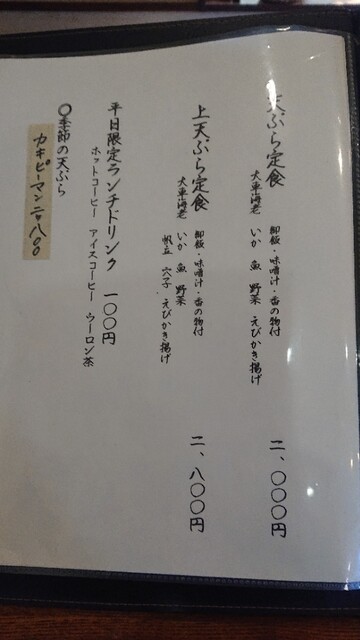 天ぷら定食
御飯・味噌汁・香の物付
大車海老 いか 魚 野菜 えびかき揚げ
二、〇〇〇円
上天ぷら定食
御飯・味噌汁・香の物付
大車海老 いか 魚 野菜
帆立 穴子 えびかき揚げ
二、八〇〇円
平日限定ランチドリンク 一〇〇円
ホットコーヒー アイスコーヒー ウーロン茶
〇季節の天ぷら
カキピーマン
八〇〇